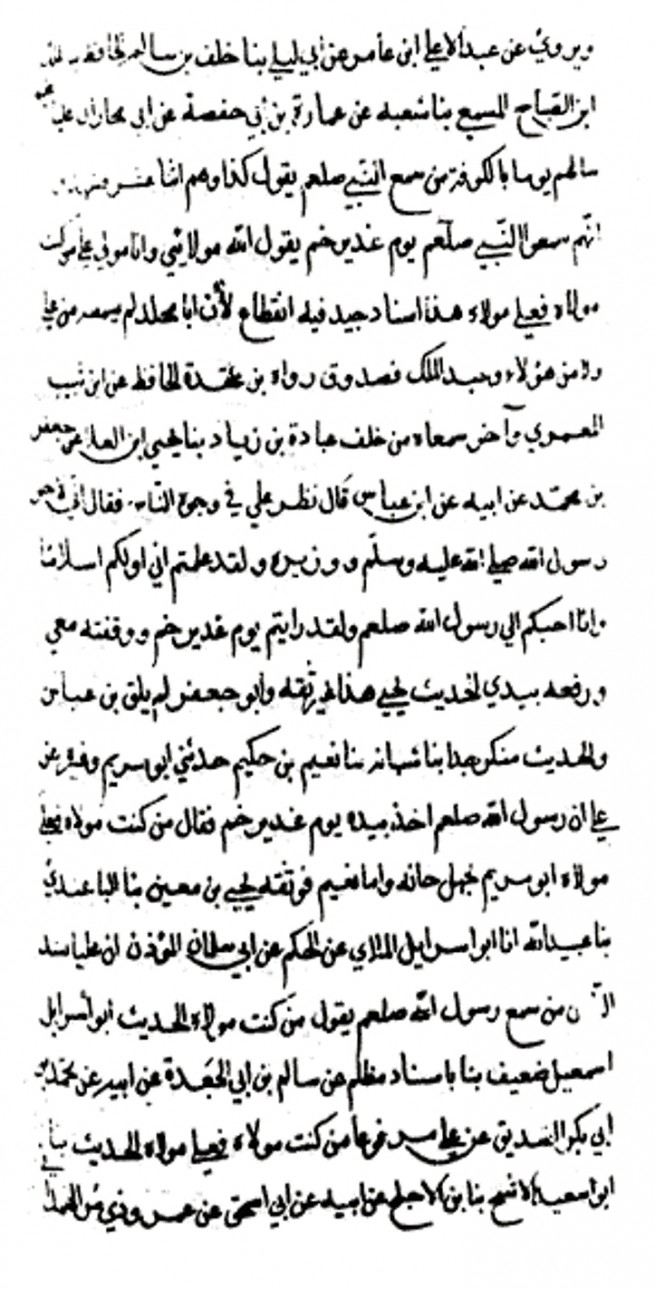 ويروى عن عبد الاعلى ابن عامر عن ابي ليلى بنا خلف بن سالم الحافظ
ابن القباح المسبع بنا شعبه عن عمارة بن ابي حفصة عن ابي
سالهم يوما بالكوفة من سمع النبي صلعم يقول كذا وهم اثنا عشر
انهم سمعوا النبي صلعم يوم غدير خم يقول الله مولائي وانا مولى علي من كنت
مولاه فعلي مولاه هذا اسناد جيد فيه انقطاع لأن ابا مجلد لم يسمعه من علي
ولا من هؤلاء وعبد الملك فصدوق رواه بن عقدة الحافظ عن ابن شبيب
المعمري وآخر سمعاه من خلف عبادة بن زياد بنا يحيى ابن العلا عن جعفر
بن محمد عن ابيه عن ابن عباس قال نظر علي في وجوه الناس فقال اني لاخو
رسول الله صلى الله عليه وسلم ووزيره ولقد علمتم اني اولكم اسلاما
وانا احبكم الي رسول الله صلعم ولقد رايتم يوم غدير خم ووقفته معي
ورفعه بيدي الحديث يحيى هذا غير ثقه وابو جعفر لم يلق بن عباس
والحديث منكر جدا بنا شبابه بنا نعيم بن حكيم حدثني ابو مريم وغيره عن
علي ان رسول الله صلعم اخذ بيده يوم غدير خم فقال من كنت مولاه فعلي
مولاه ابو مريم نجهل حاله واما نعيم فوثقه يحيى بن معين بنا الباغندي
بنا عبيد الله انا ابو اسرايل الملاي عن الحكم عن ابي سلمان المؤذن ان عليا نشد
من سمع رسول الله صلعم يقول من كنت مولاه الحديث ابو اسرايل
اسمعيل ضعيف بنا باسناد مظلم عن سالم بن ابي الجعدة عن ابيه عن محمد بن
ابي بكر الصديق عن علي مرفوعا من كنت مولاه فعلي مولاه الحديث بنا
ابو سعيد الاشج بنا بن الاجلح عن ابيه عن ابي اسحق عن عمرو ذي مر الهمداني